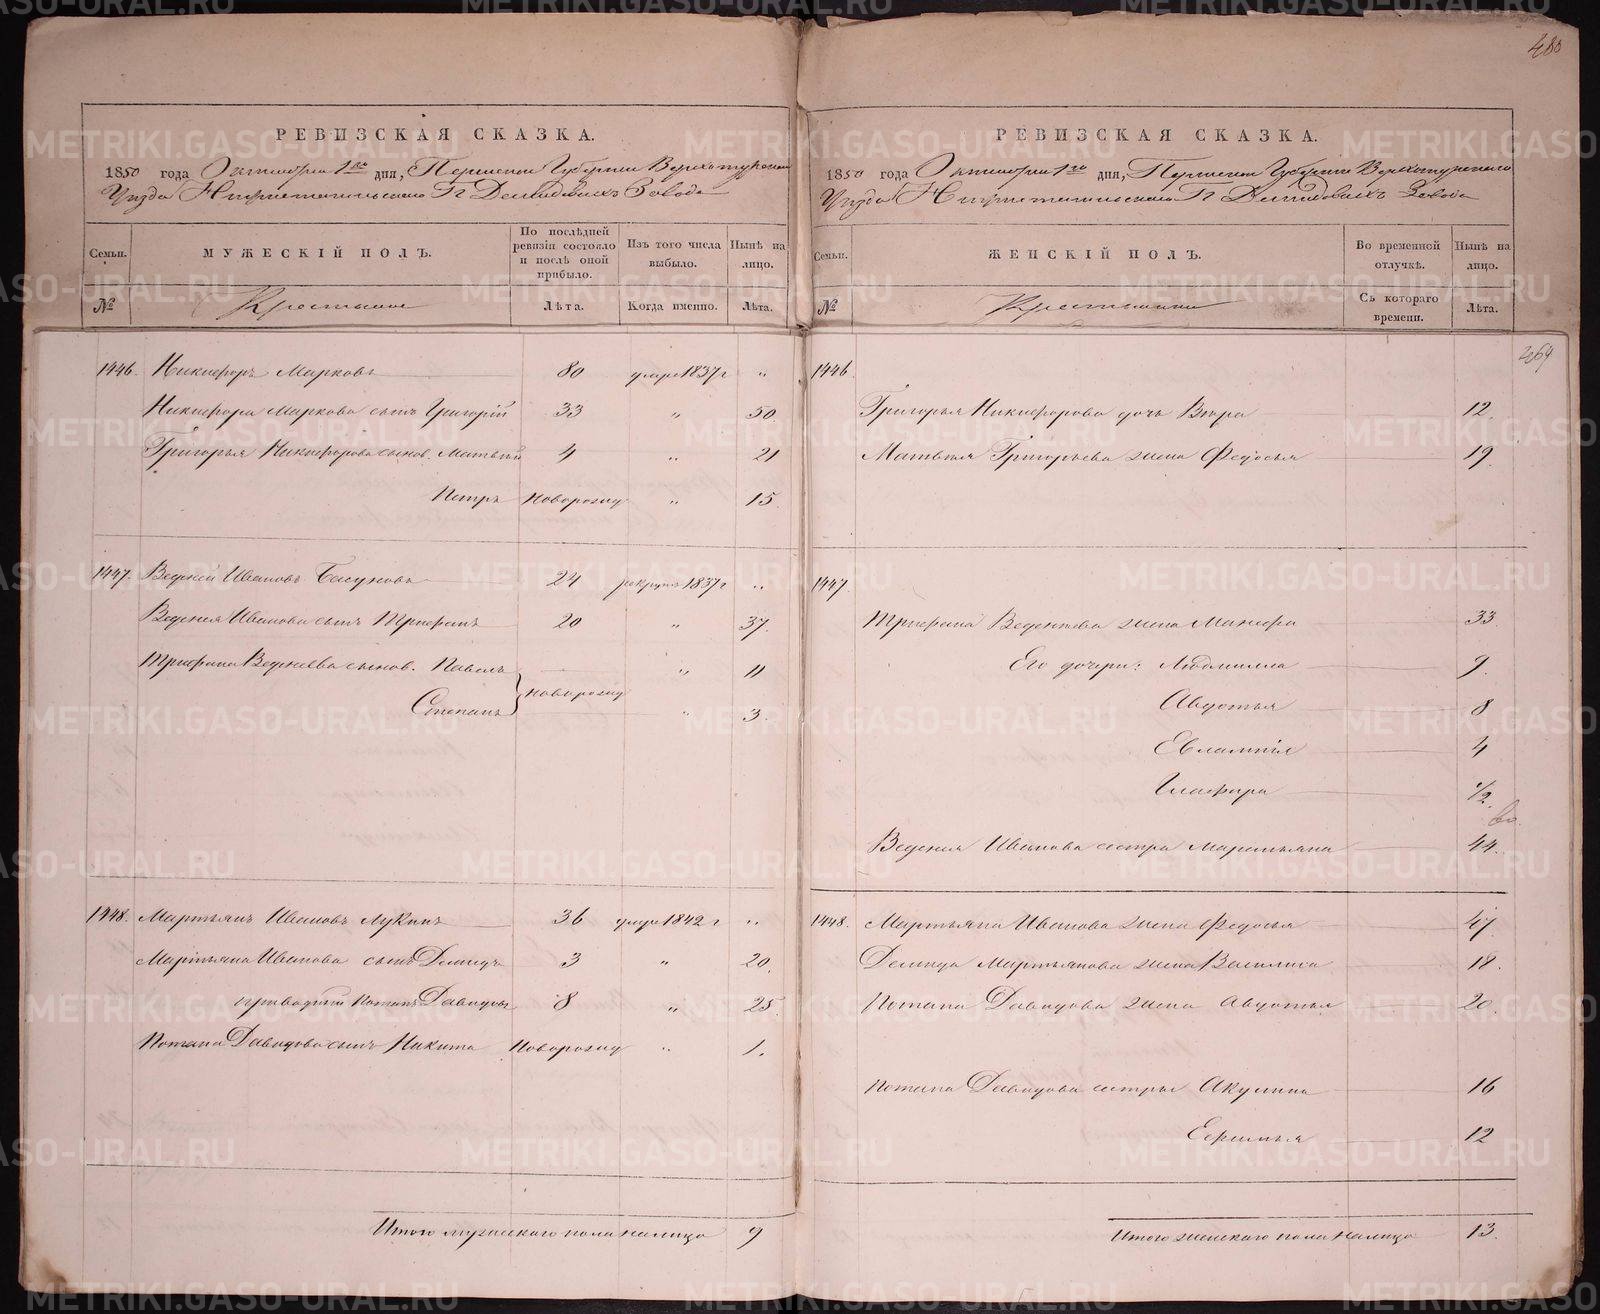 480
РЕВИЗСКАЯ СКАЗКА.
1850 года Октября 1го дня, Пермской Губернии Верхотурскаго
Уезда Нижнетагильскаго Г. Демидовыхъ Завода
Семьи. МУЖЕСКІЙ ПОЛЪ. По послѣдней ревизіи состояло и послѣ оной прибыло. Изъ того числа выбыло. Нынѣ на лицо.
№ Крестьяне Лѣта. Когда именно. Лѣта.
1446. Никифоръ Марковъ 80 умре 1837 г "
Никифора Маркова сынъ Григорій 33 " 50.
Григорья Никифорова сынов. Матвѣй 4 " 21
Петръ новорожд " 15
1447. Веденей Ивановъ 24 рекрут 1837 г "
Веденея Иванова сынъ Трифонъ 20 " 37.
Трифона Веденеева сынов. Павелъ " 11
новорожд
Степанъ " 3.
1448. Мартьянъ Ивановъ Лукинъ 36 умре 1842 г "
Мартьяна Иванова сынъ Демидъ 3 " 20.
приводный Потапъ Давыдов 8 " 25.
Потапа Давыдова сынъ Никита новорожд " 1.
Итого мужескаго пола налицо 9
РЕВИЗСКАЯ СКАЗКА.
1850 года Октября 1го дня, Пермской Губернии Верхотурскаго
Уезда Нижнетагильскаго Г. Демидовыхъ Завода
Семьи. ЖЕНСКІЙ ПОЛЪ. Во временной отлучкѣ. Нынѣ на лицо.
№ Крестьянки Съ котораго времени. Лѣта.
464
1446.
Григорья Никифорова дочь Вѣра 12.
Матвѣя Григорьева жена Федосья 19.
1447.
Трифона Веденеева жена Манефа 33.
Его дочери: Людмилла 9.
Авдотья 8
Евлампія 4
Глафира 1/2.
Веденея Иванова сестра Маремьяна 44.
1448. Мартьяна Иванова жена Федосья 47.
Демида Мартьянова жена Василиса 18.
Потапа Давыдова жена Авдотья 20.
Потапа Давыдова сестры Акулина 16
Ефимья 12
Итого женскаго пола налицо 13.
METRIKI.GASO-URAL.RU